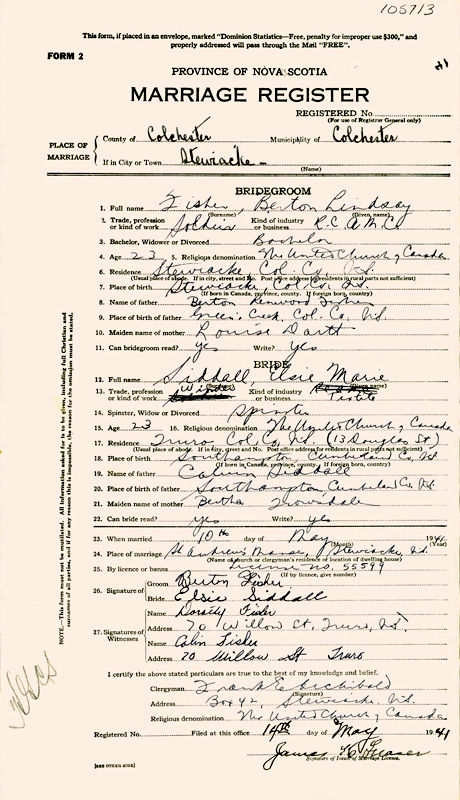 105713
This form, if placed in an envelope, marked "Dominion Statistics—Free, penalty for improper use $300," and
properly addressed will pass through the Mail "FREE".
FORM 2
PROVINCE OF NOVA SCOTIA
MARRIAGE REGISTER
REGISTERED No
(For use of Registrar General only)
PLACE OF MARRIAGE
County of Colchester Municipality of Colchester
If in City or Town Stewiacke
(Name)
BRIDEGROOM
1. Full name Fisher, Berton Lindsay
(Surname) (Given name)
2. Trade, profession or kind of work Soldier Kind of industry or business R.C.A.M.C.
3. Bachelor, Widower or Divorced Bachelor
4. Age 22 5. Religious denomination The United Church of Canada
6. Residence Stewiacke, Col. Co. N.S.
(Usual place of abode. If in city, give street and No. Post office address if residents in rural parts not sufficient)
7. Place of birth Stewiacke, Col. Co. N.S.
(If born in Canada, province, county. If foreign born, country)
8. Name of father Berton Fisher
9. Place of birth of father Green's Creek, Col. Co, N.S.
10. Maiden name of mother Louise Dartt
11. Can bridegroom read? yes Write? yes
BRIDE
12. Full name Siddall, Elsie Marie
13. Trade, profession or kind of work Kind of industry or business Textile
14. Spinster, Widow or Divorced Spinster
15. Age 23 16. Religious denomination The United Church of Canada
17. Residence Truro Col. Co, N.S. (13 Douglas St)
(Usual place of abode. If in city, give street and No. Post office address for residents in rural parts not sufficient)
18. Place of birth Southampton, Cumberland Co, N.S.
(If born in Canada, province, county. If foreign born, country)
19. Name of father Siddall
20. Place of birth of father Southampton Cumberland Co, N.S.
21. Maiden name of mother Bertha
22. Can bride read? yes Write? yes
23. When married 10th day of May 1941
(Month)
24. Place of marriage St Andrew's Manse, Stewiacke, N.S.
(Name of church or clergyman's residence or location of dwelling house)
25. By licence or banns License no. 55599
(If by licence, give number)
26. Signature of
Groom Berton Fisher
Bride Elsie Siddall
27. Signatures of Witnesses
Name Dorothy Fisher
Address 70 Willow St, Truro, N.S.
Name Colin Fisher
Address 70 Willow St Truro
I certify the above stated particulars are true to the best of my knowledge and belief.
Clergyman Frank E. Archibald
(Signature)
Address Box 42, Stewiacke, N.S.
Religious denomination The United Church of Canada
Registered No. Filed at this office 14th day of May 1941
James Fraser
Signature of Issuer of Marriage Licence.
[SEE OTHER SIDE]
NOTE.—This form must not be mutilated. All information asked for is to be given, including full Christian and
surnames of all parties, and if for any reason this is impossible, the reason for the omission must be stated.